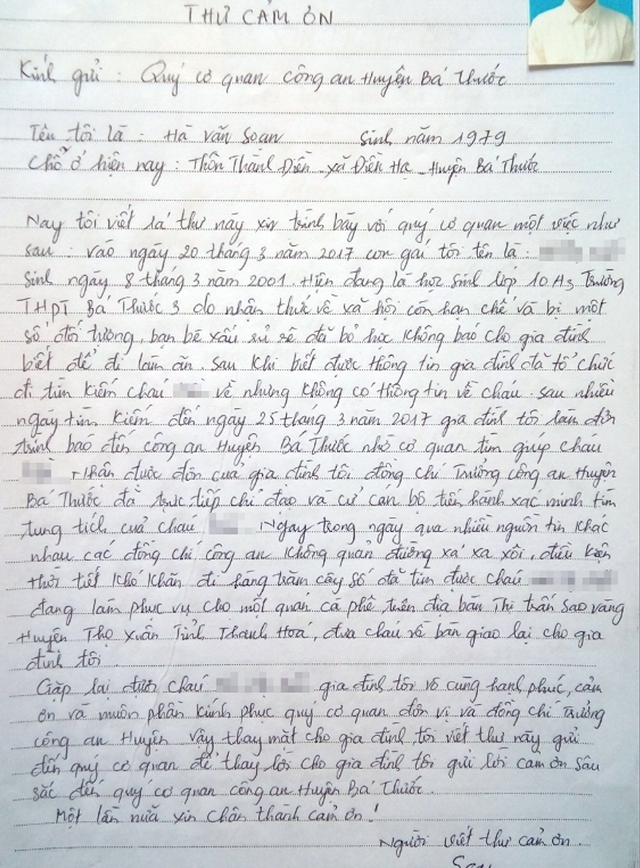 THƯ CẢM ƠN
Kính gửi : Quý cơ quan công an Huyện Bá Thước
Tên tôi là : Hà Văn Soan Sinh năm 1979
Chỗ ở hiện nay : Thôn Thành Điền - xã Điền Hạ - Huyện Bá Thước
Nay tôi viết lá thư này xin trình bày với quý cơ quan một việc như
sau : vào ngày 20 tháng 3 năm 2017 con gái tôi tên là :
Sinh ngày 8 tháng 3 năm 2001. Hiện đang là học sinh lớp 10A3 Trường
THPT Bá Thước 3 do nhận thức về xã hội còn hạn chế và bị một
số đối tượng, bạn bè xấu rủ rê đã bỏ học không báo cho gia đình
biết để đi làm ăn. Sau khi biết được thông tin gia đình đã tổ chức
đi tìm kiếm cháu về nhưng không có thông tin về cháu. Sau nhiều
ngày tìm kiếm đến ngày 25 tháng 3 năm 2017 gia đình tôi làm đơn
trình báo đến công an Huyện Bá Thước nhờ cơ quan tìm giúp cháu
. Nhận được đơn của gia đình tôi đồng chí Trưởng công an Huyện
Bá Thước đã trực tiếp chỉ đạo và cử cán bộ tiến hành xác minh tìm
tung tích của cháu . Ngay trong ngày qua nhiều nguồn tin khác
nhau các đồng chí công an không quản đường xá xa xôi, điều kiện
thời tiết khó khăn đi hàng trăm cây số đã tìm được cháu
đang làm phục vụ cho một quán cà phê trên địa bàn Thị trấn Sao vàng
Huyện Thọ Xuân Tỉnh Thanh Hoá, đưa cháu về bàn giao lại cho gia
đình tôi.
Gặp lại được cháu gia đình tôi vô cùng hạnh phúc, cảm
ơn và muôn phần kính phục quý cơ quan đơn vị và đồng chí Trưởng
công an Huyện vậy thay mặt cho gia đình, tôi viết thư này gửi
đến quý cơ quan để thay lời cho gia đình tôi gửi lời cảm ơn sâu
sắc đến quý cơ quan công an Huyện Bá Thước.
Một lần nữa xin chân thành cảm ơn !
Người viết thư cảm ơn.